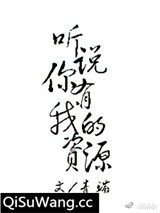 听说你有我的資源
文/青端
QiSuWang.com